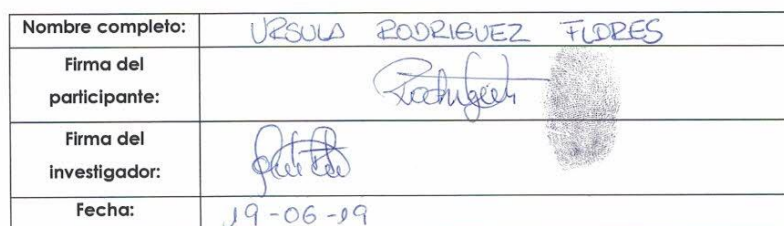 Nombre completo: URSULA RODRIGUEZ FLORES
Firma del
participante:
Firma del
investigador:
Fecha: 19-06-19